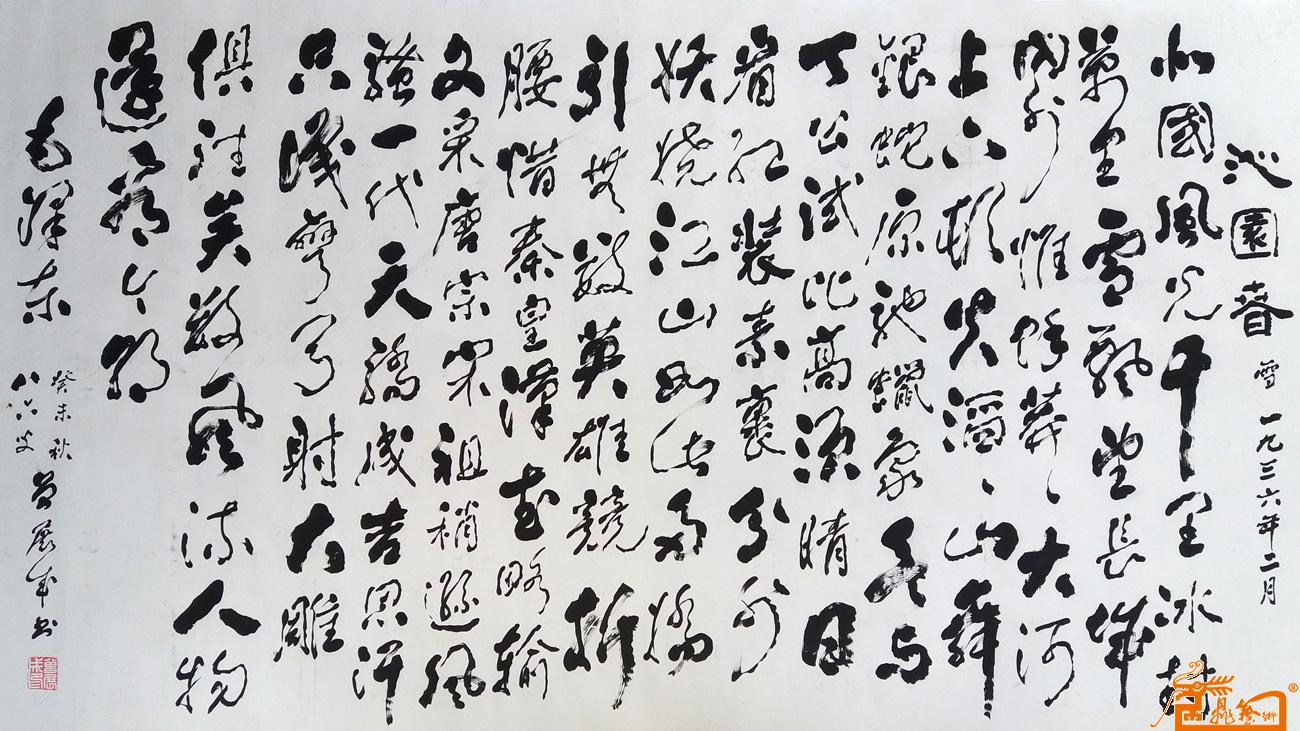 沁園春 雪 一九三六年二月
北國風光千里冰封
萬里雪飄望長城
内外惟餘莽々大河
上下頓失滔々山舞
銀蛇原馳蠟象欲與
天公試比高須晴日
看紅裝素裹分外
妖嬈江山如此多嬌
引無數英雄競折
腰惜秦皇漢武略輸
文采唐宗宋祖稍遜風
騷一代天驕成吉思汗
只識彎弓射大雕
俱往矣數風流人物
還看今朝
毛澤東
癸未秋
八六叟 曾展成书